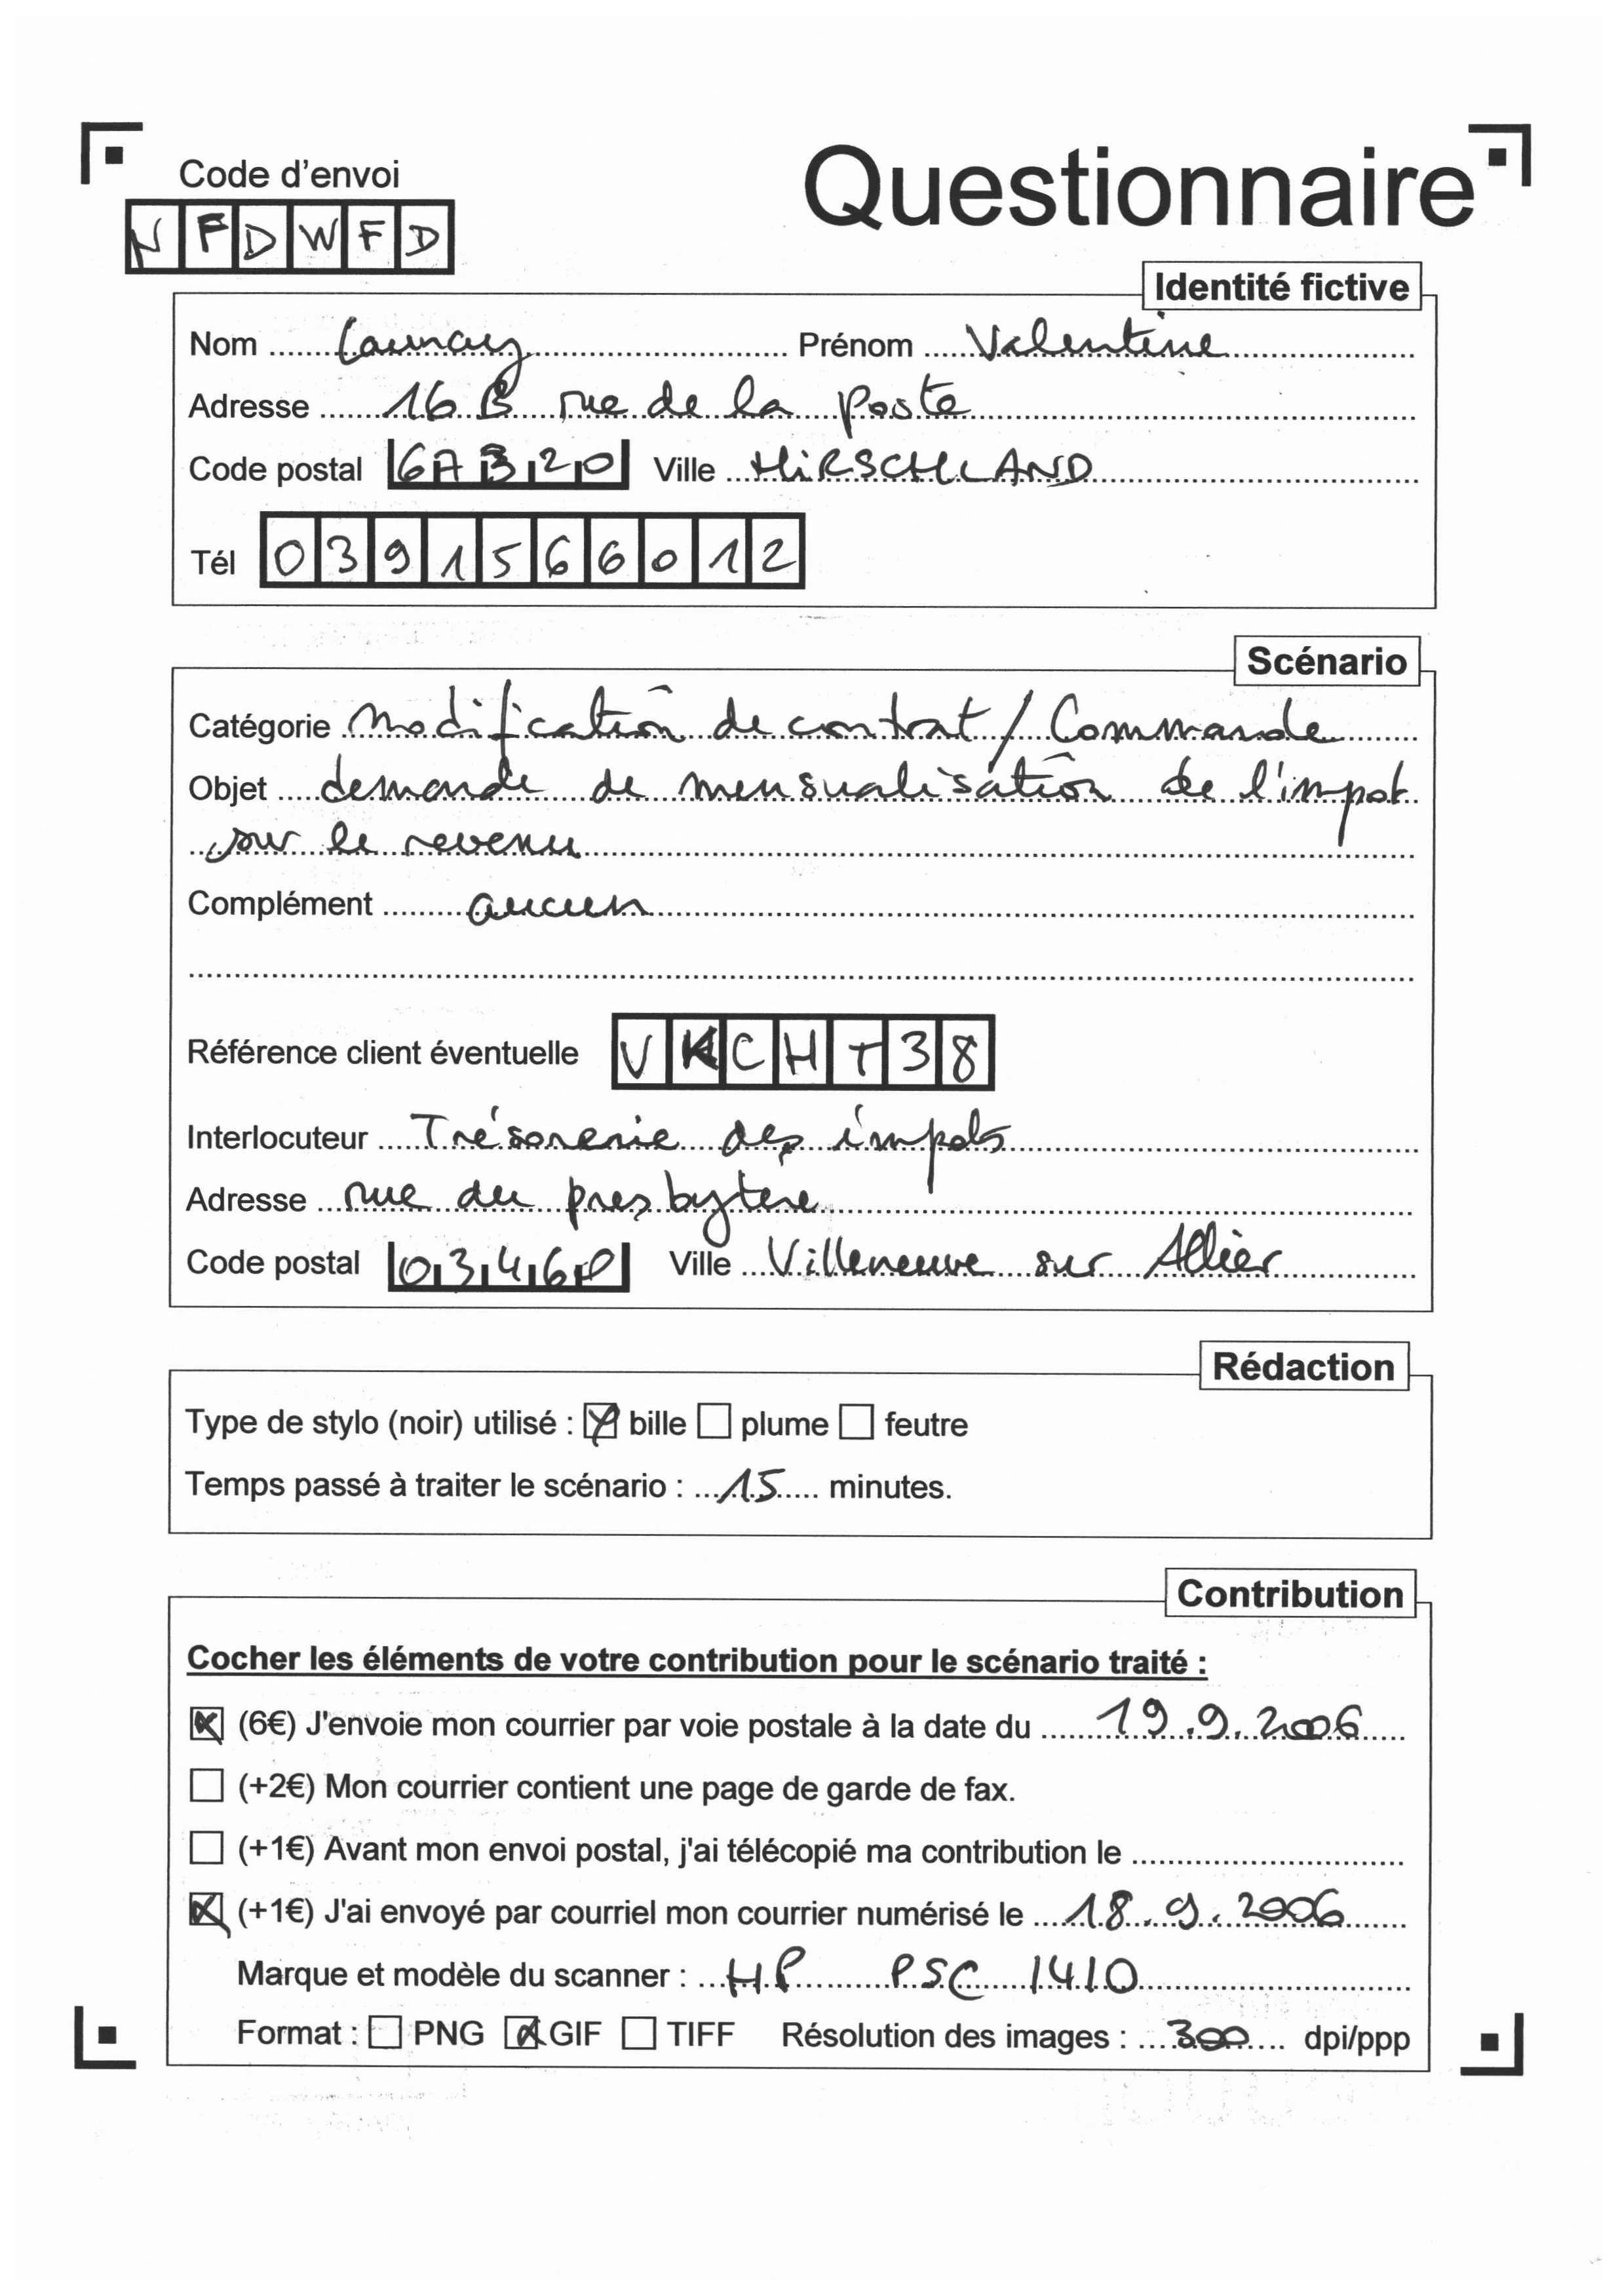 Code d'envoi
Questionnaire
N F D W F D
Identité fictive
Nom Launay Prénom Valentine
Adresse 16 B rue de la poste
Code postal 67320 Ville HIRSCHLAND
Tél 0391566012
Scénario
Catégorie Modification de contrat / Commande
Objet demande de mensualisation de l'impot
sur le revenu
Complément aucun
Référence client éventuelle V K C H T 3 8
Interlocuteur Trésorerie des impots
Adresse rue du presbytère
Code postal 03460 Ville Villeneuve sur Allier
Rédaction
Type de stylo (noir) utilisé : bille plume feutre
Temps passé à traiter le scénario : 15 minutes.
Contribution
Cocher les éléments de votre contribution pour le scénario traité :
(6€) J'envoie mon courrier par voie postale à la date du 19.9.2006
(+2€) Mon courrier contient une page de garde de fax.
(+1€) Avant mon envoi postal, j'ai télécopié ma contribution le
(+1€) J'ai envoyé par courriel mon courrier numérisé le 18.9.2006
Marque et modèle du scanner : HP PSC 1410
Format : PNG GIF TIFF Résolution des images : 300 dpi/ppp